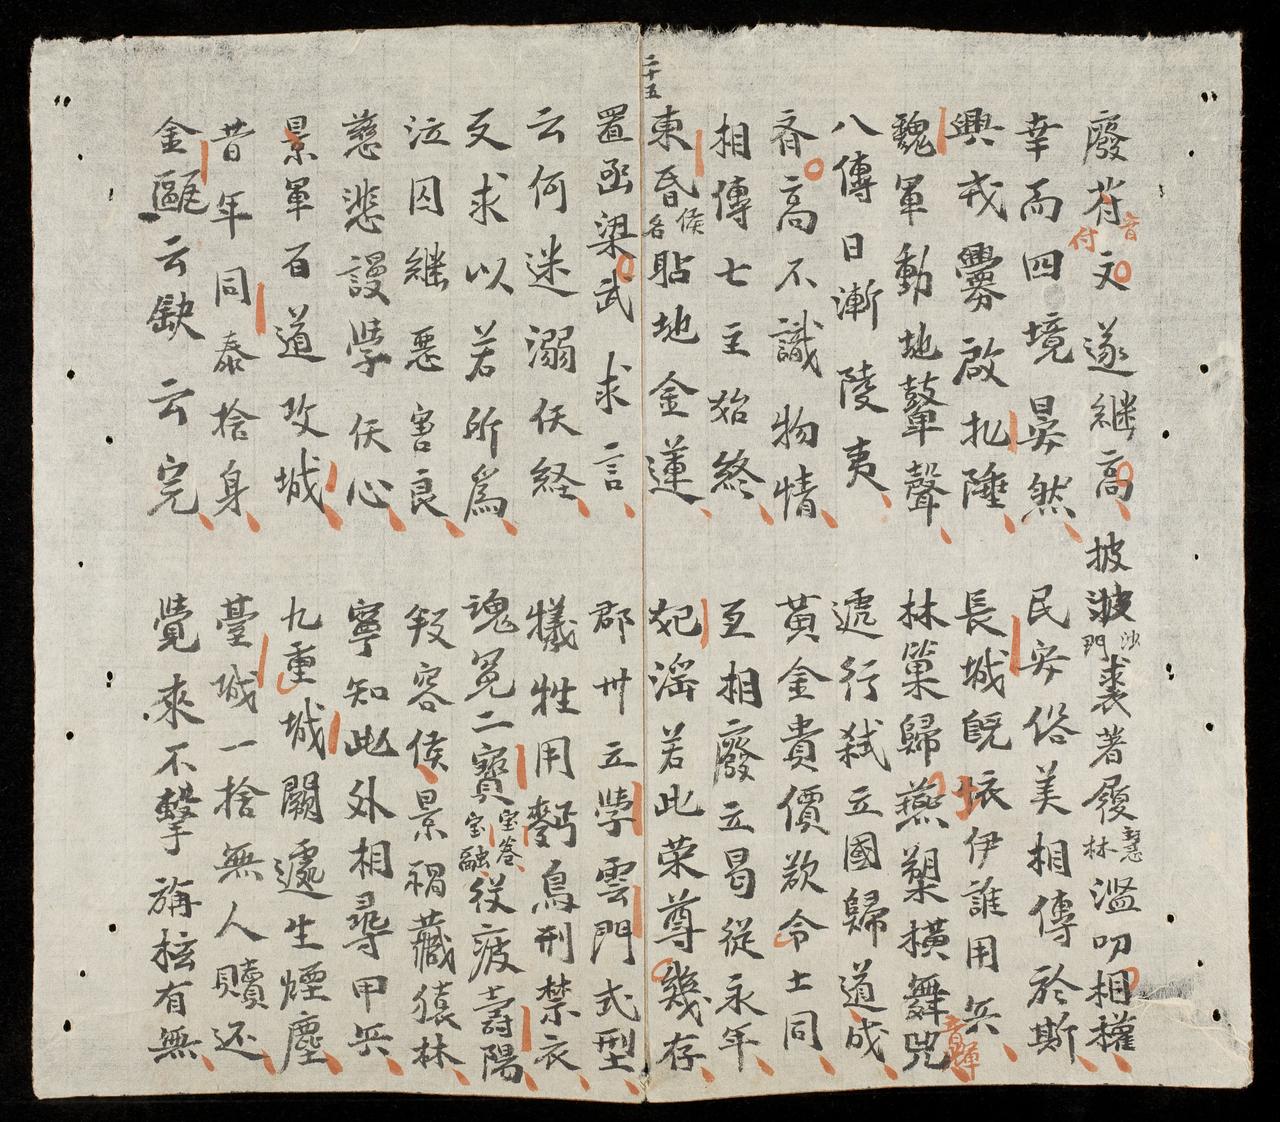 廢苻文遂継高披波沙門裘著履慧林濫叨相權
音付
幸而四境晏然民安俗美相傳於斯
興戎釁啟扎陲長城旣壊伊誰用兵
魏軍動地鼙聲林巢歸燕槊橫舞兜
音暉
八傳日漸陵夷遞行弒立國歸道成
斉高不識物情黃金貴價欲令土同
相傳七主始終互相廢立曷從永年
二十五
東昏侯名貼地金蓮妃滛若此荣尊幾存
置函梁武求言郡卅立學雲門式型
云何迷溺仸経犠牲用麪鳥刑禁衣
叉求以若所爲魂冕二寶宝卷宝融从疲壽陽
泣囚継惡害良叚容侯景禍蔵猿林
慈悲謾學仸心寧知此外相尋甲兵
景軍百道攻城九重城闕遽生煙塵
昔年同泰捨身臺城一捨無人贖还
金甌云缺云完覺來不擊旃柾有無